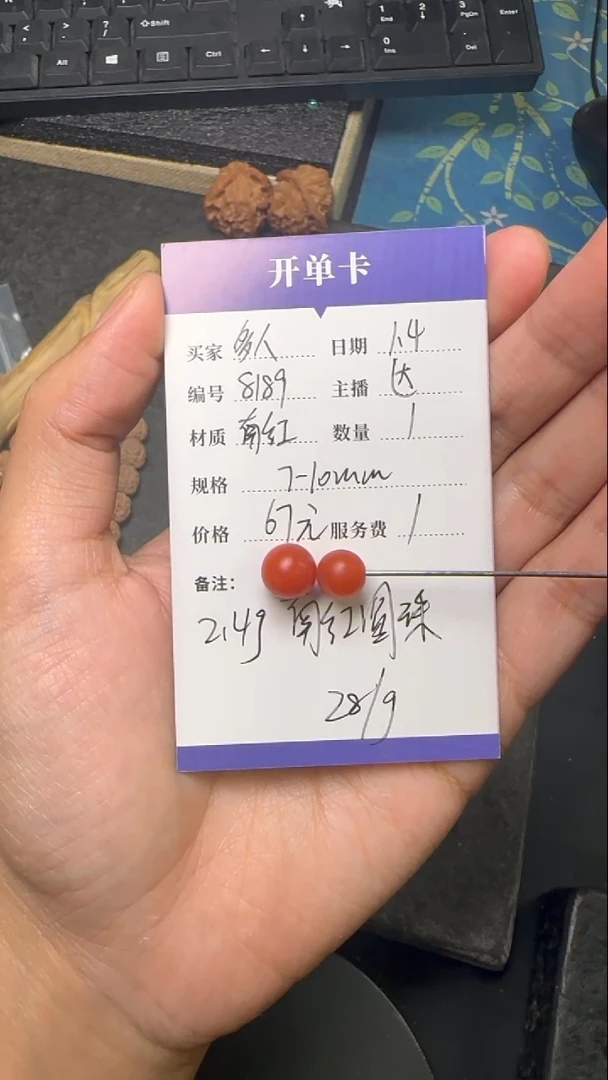 Shift
Alt
Ctrl
1
End
2
3
PgDn
Enter
0
Ins
.
Del
开单卡
买家 多人 日期 1.4
编号 8189 主播 达
材质 南红 数量 1
规格 7-10mm
价格 67元 服务费 1
备注:
2.4g 南红圆珠
28/g